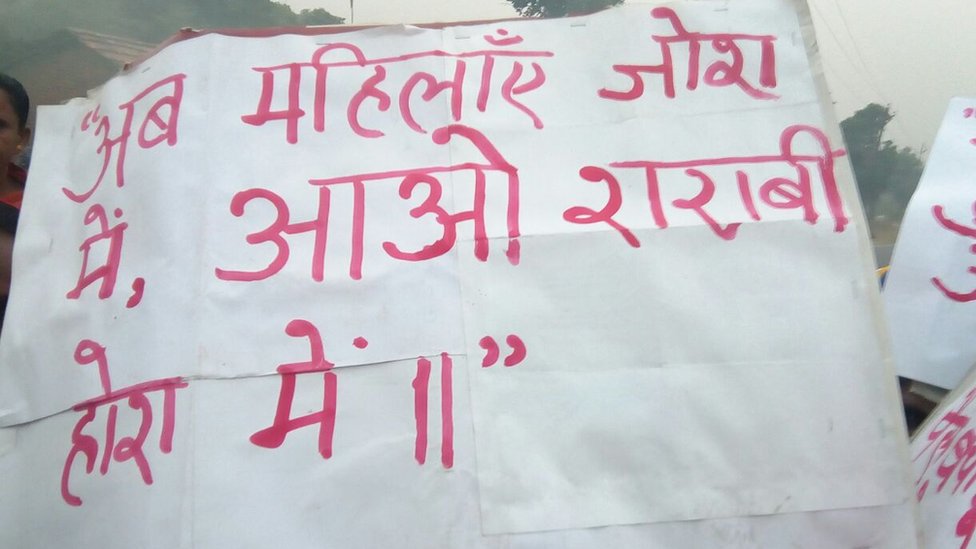 “अब महिलाएँ जोश
में, आओ शराबी
होश में॥”